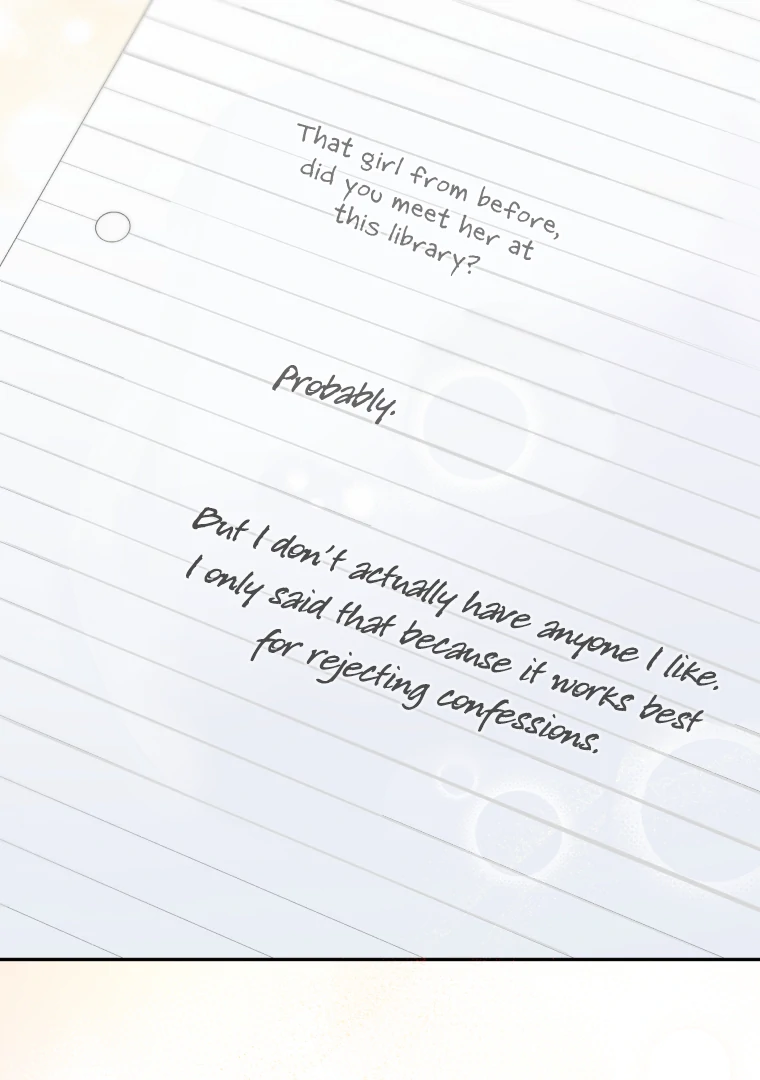 That girl from before,
did you meet her at
this library?
Probably.
But I don't actually have anyone I like.
I only said that because it works best
for rejecting confessions.